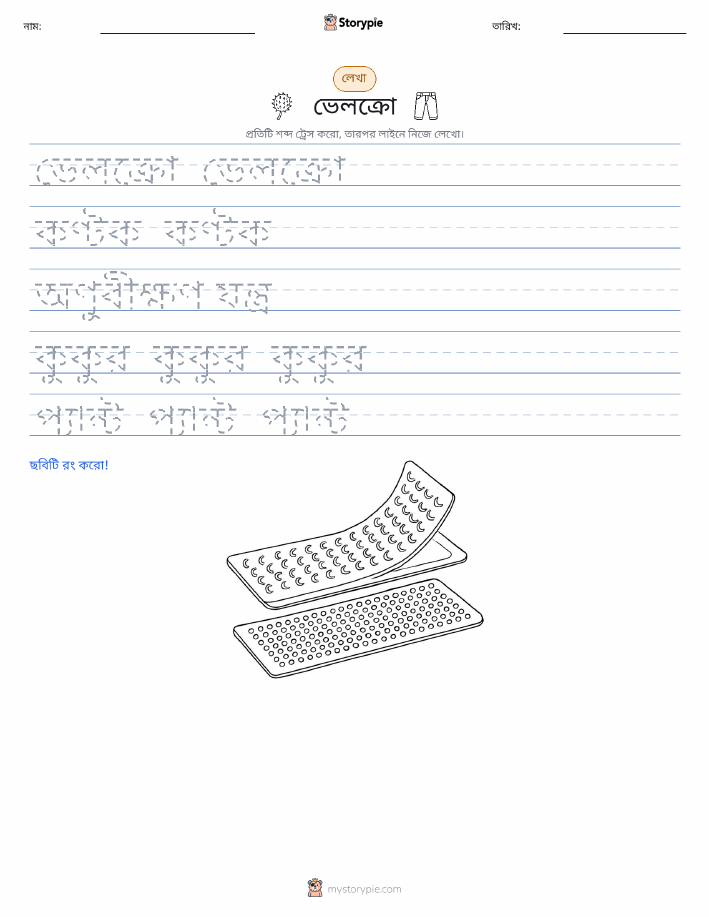 নাম: Storypie তারিখ:
লেখা
ভেলক্রো
প্রতিটি শব্দ ট্রেস করো, তারপর লাইনে নিজে লেখো।
ভেলক্রো ভেলক্রো
কণ্টক কণ্টক
অণুবীক্ষণ যন্ত্র
কুকুর কুকুর কুকুর
প্যান্ট প্যান্ট প্যান্ট
ছবিটি রং করো!
mystorypie.com